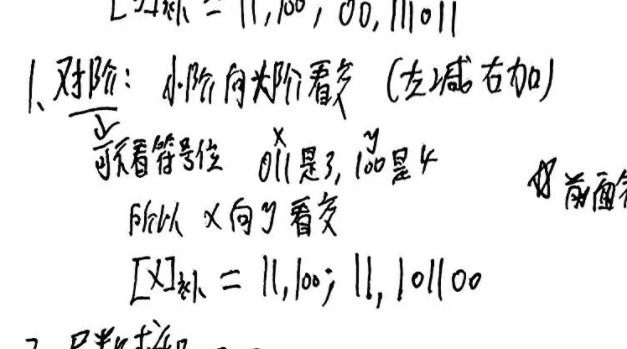 [y]补 = 11,100; 00,111011
1、对阶: 小阶向大阶看齐 (左减右加)
可不看符号位 x 011是3, y 100是4
所以 x向y看齐
前面
[X]补 = 11,100; 11,101100
2、尾数求和